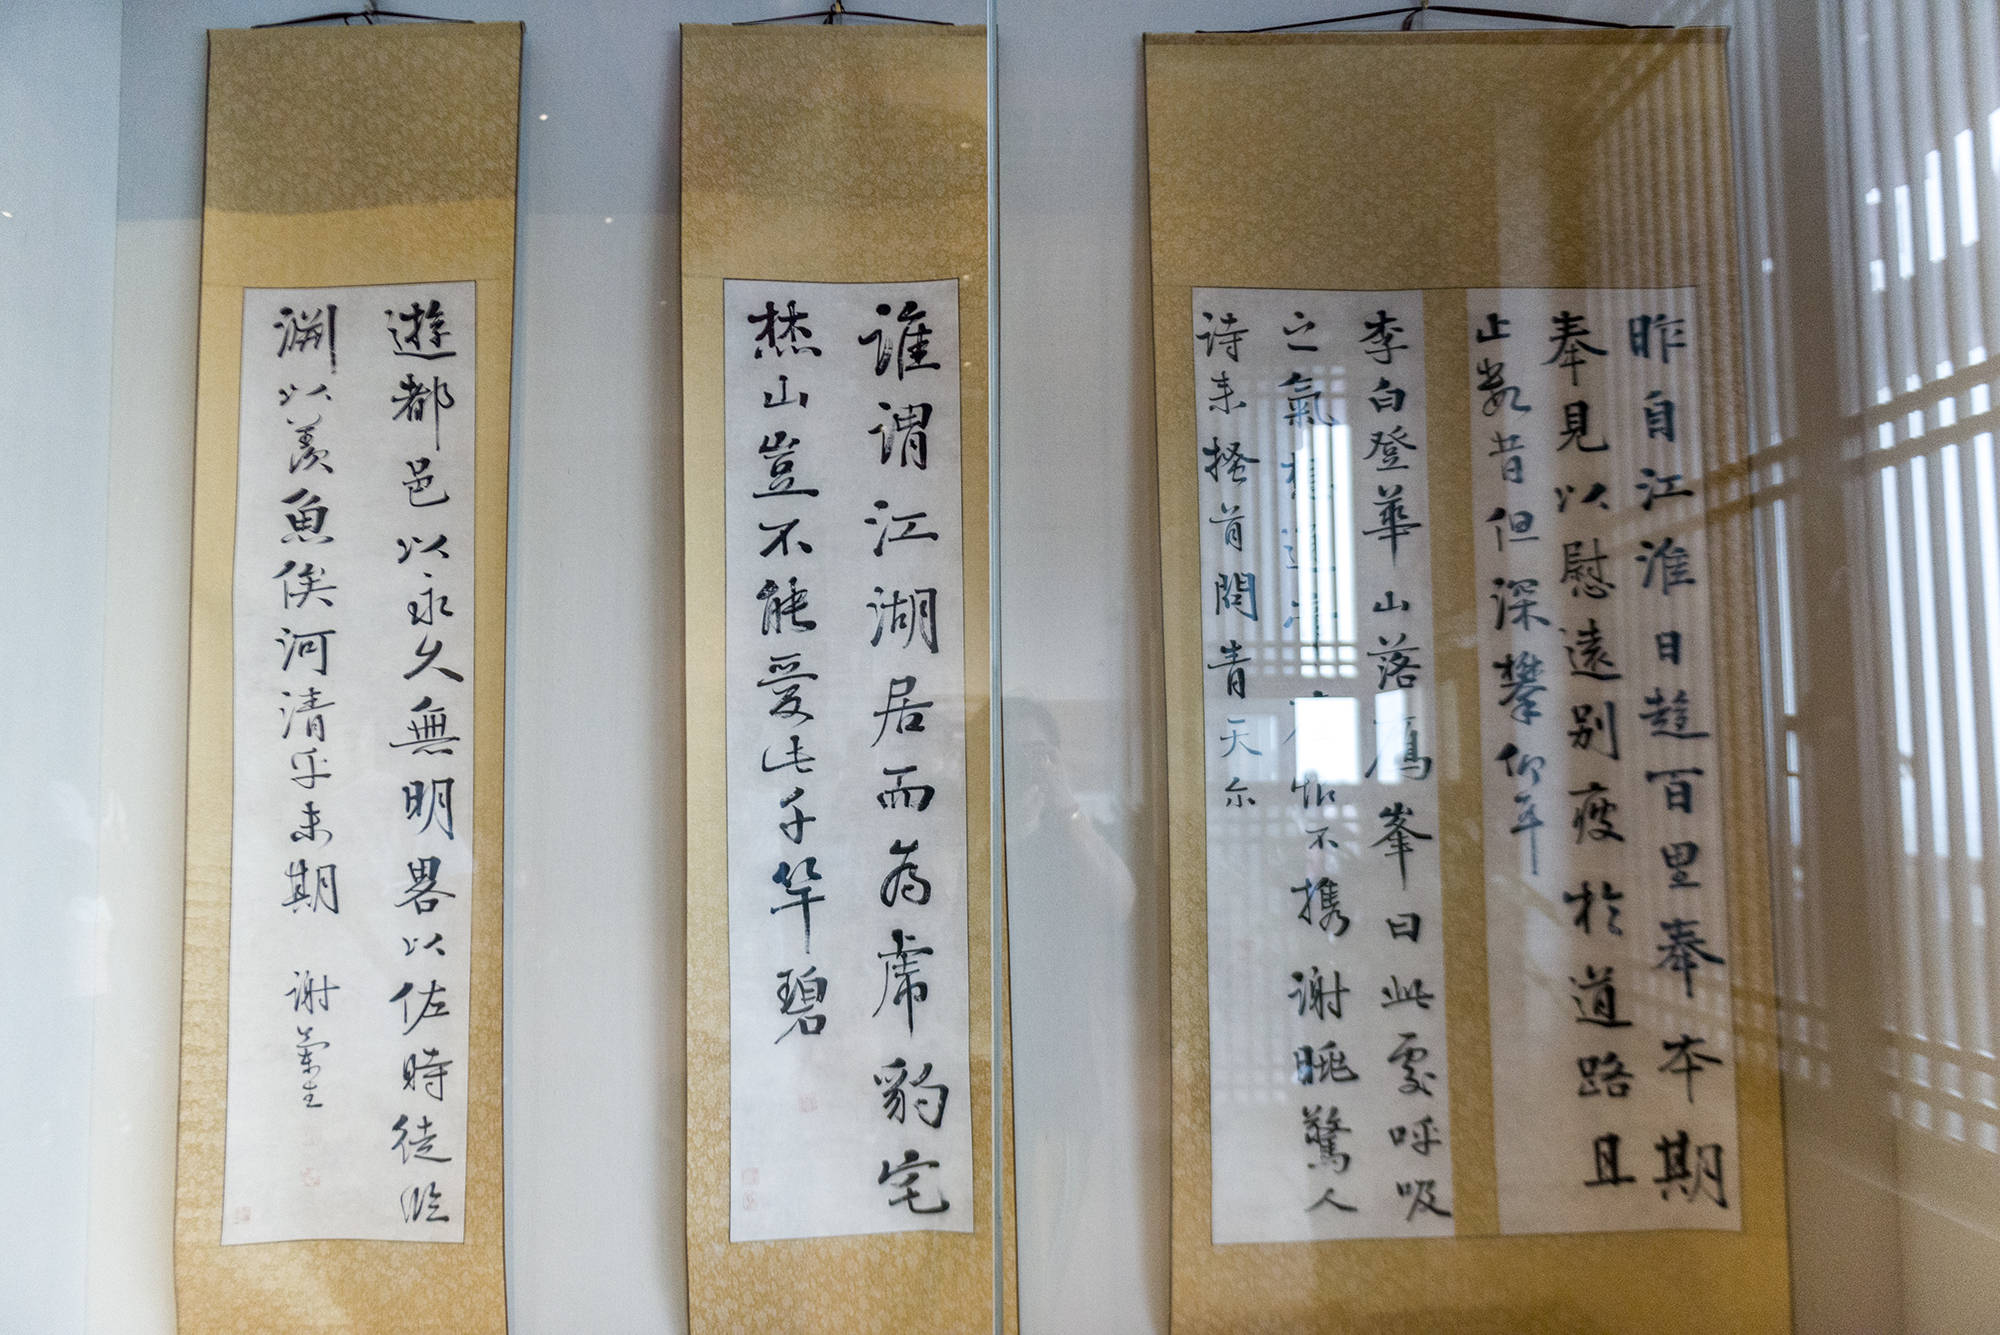 昨自江淮日趍百里奉本期
奉見以慰遠別疲於道路且
止数昔但深攀仰耳
李白登華山落鴈峯曰此處呼吸
之氣想通帝座恨不携謝眺驚人
詩来搔首問青天尔
誰謂江湖居而為虎豹宅
焚山豈不能愛此千竿碧
遊都邑以永久無明畧以佐時徒臨
淵以羨魚俟河清乎未期 謝蘭生